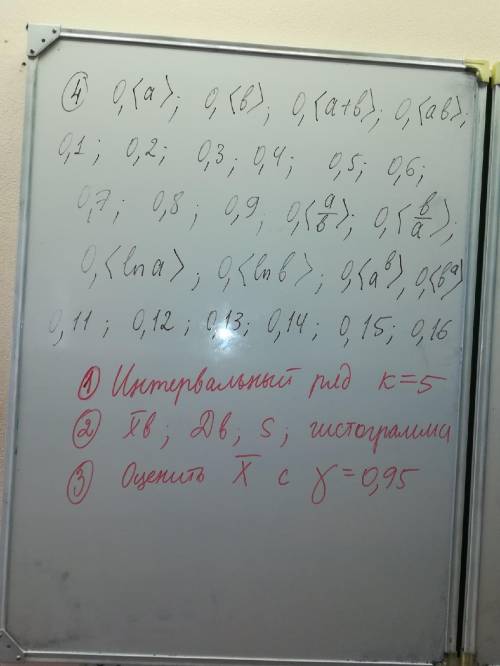 ④ 0,⟨a⟩; 0,⟨b⟩; 0,⟨a+b⟩; 0,⟨ab⟩;
0,1; 0,2; 0,3; 0,4; 0,5; 0,6;
0,7; 0,8; 0,9; 0,⟨a/b⟩; 0,⟨b/a⟩;
0,⟨ln a⟩; 0,⟨ln b⟩; 0,⟨a^b⟩, 0,⟨b^a⟩
0,11; 0,12; 0,13; 0,14; 0,15; 0,16
① Интервальный ряд к=5
② X̄в; Дв, S; гистограмма
③ Оценить X̄ с γ=0,95